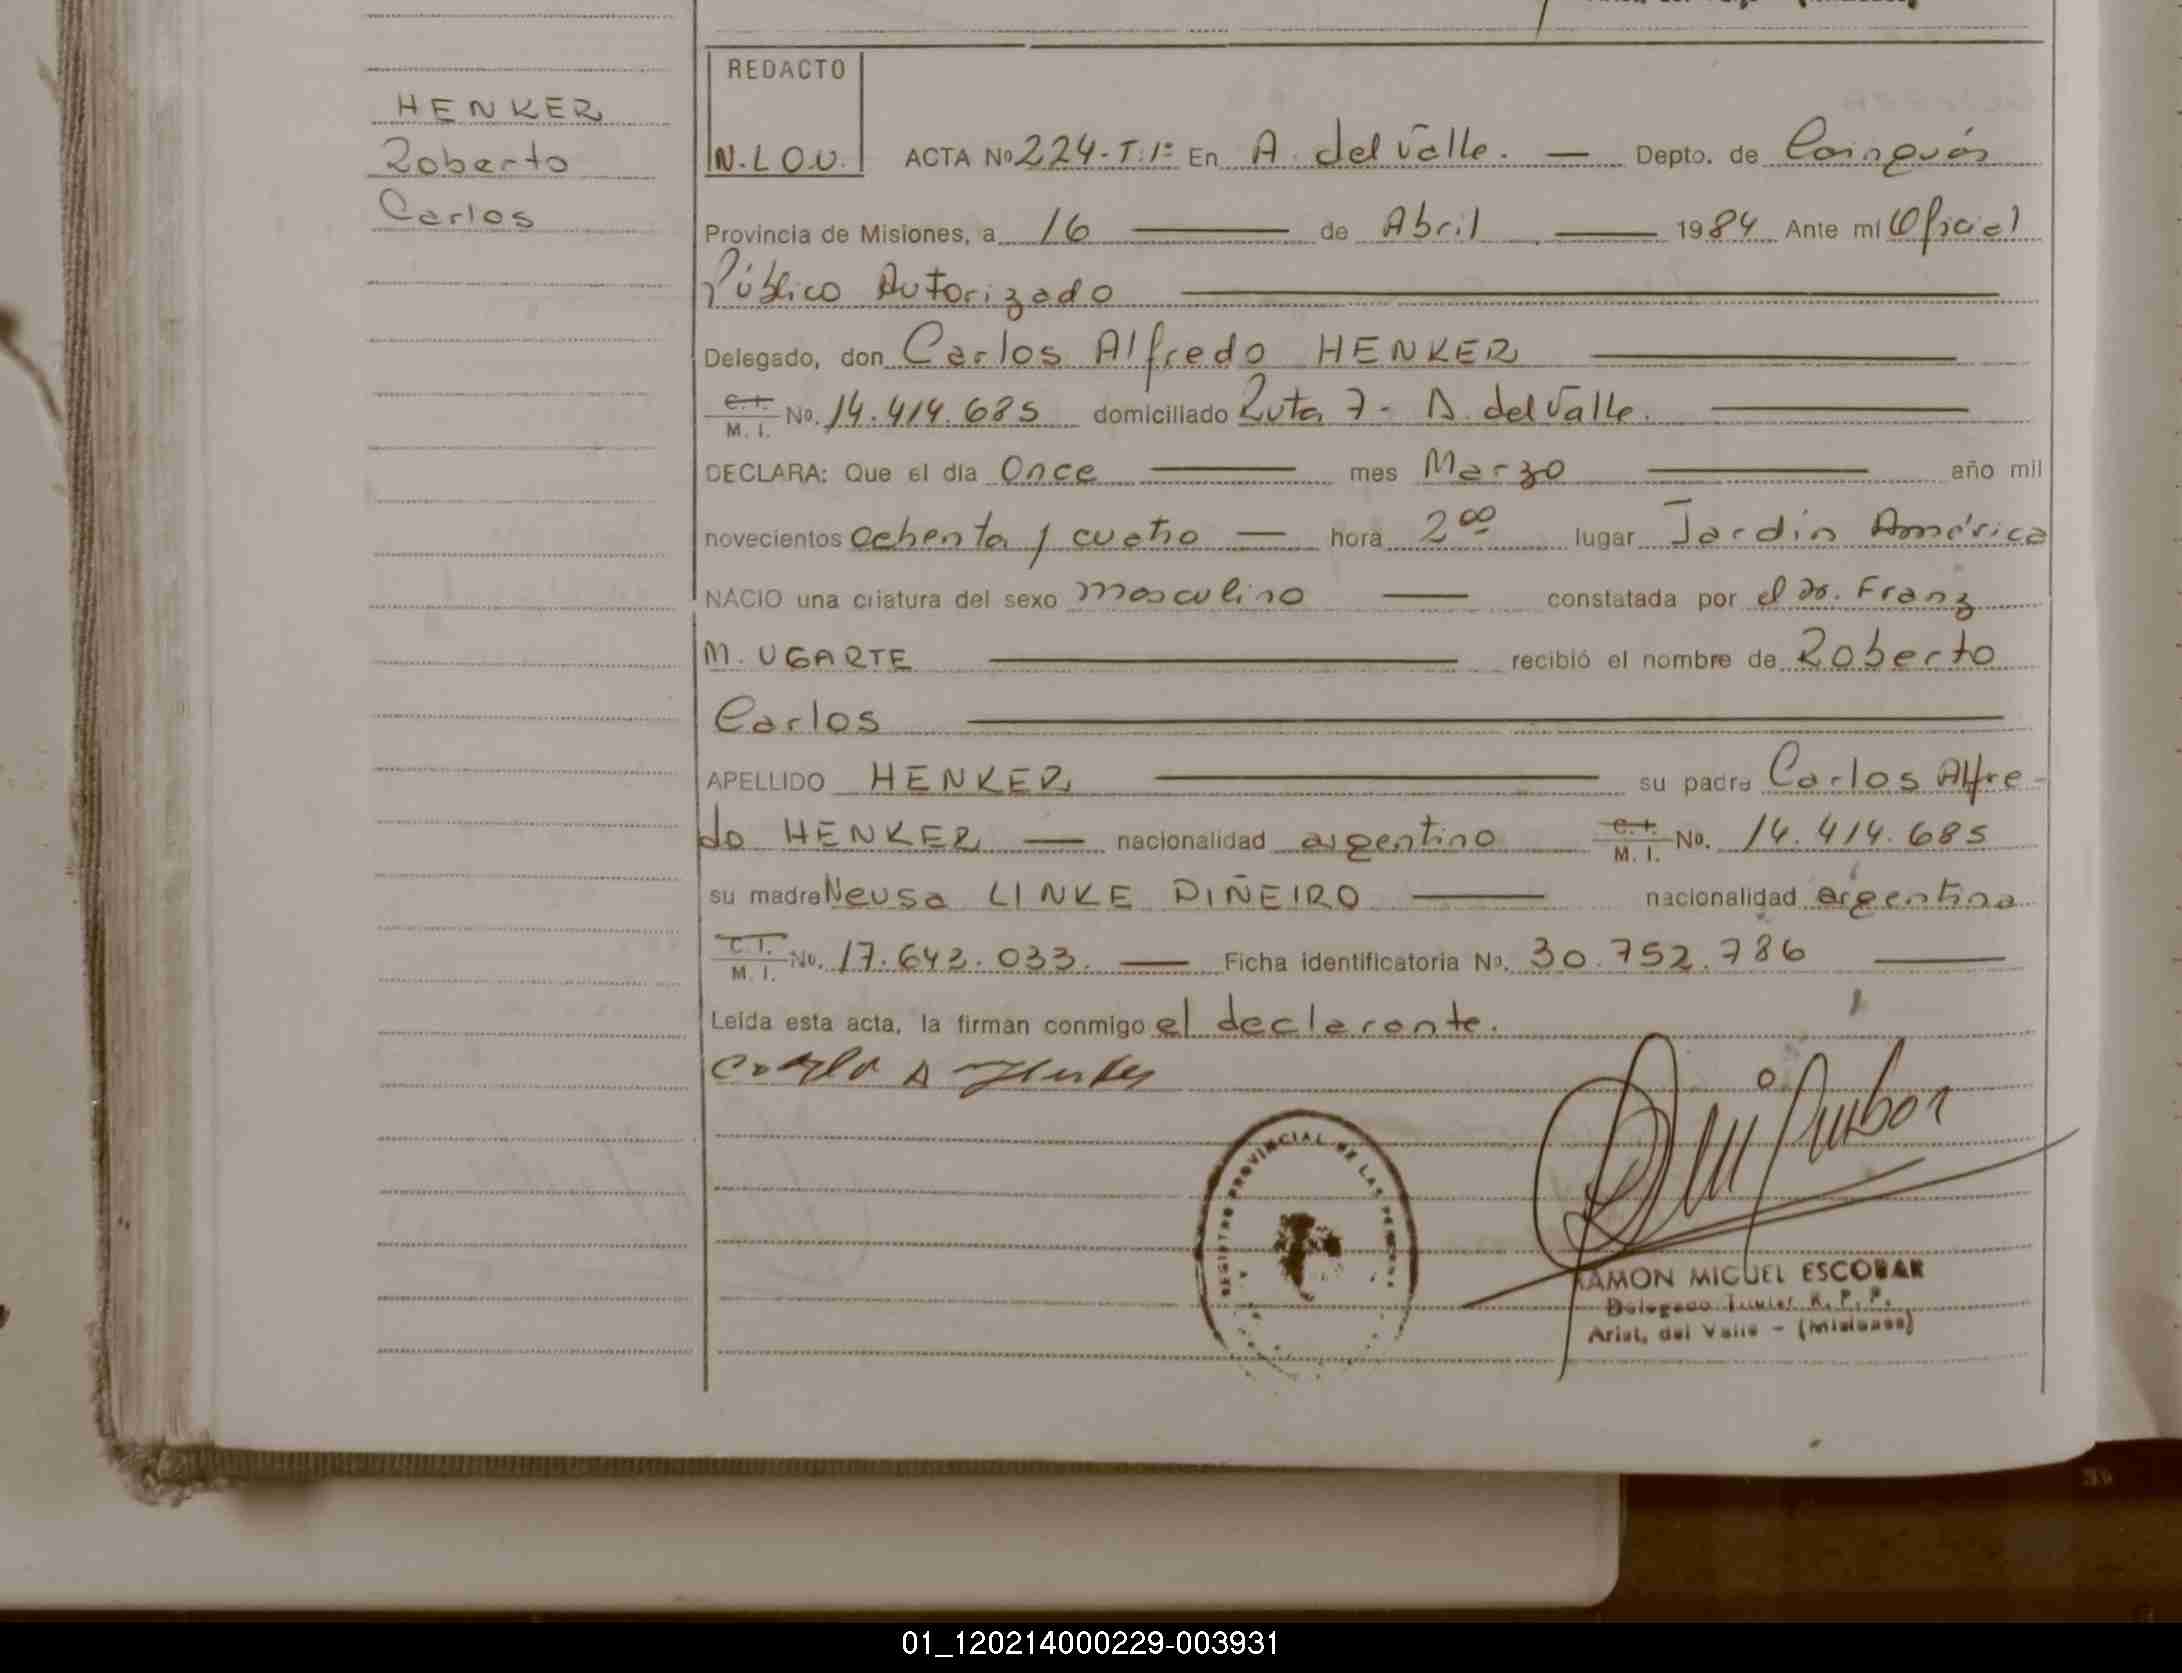 HENKER
Roberto
Carlos
REDACTO
N.L.O.U.
ACTA Nº 224-T.1º En A. del Valle. — Depto. de Cainguás
Provincia de Misiones, a 16 — de Abril — 1984 Ante mí Oficial
Público Autorizado —
Delegado, don Carlos Alfredo HENKER —
C.I. M. I. No. 14.414.685 domiciliado Ruta 7 - A. del Valle. —
DECLARA: Que el día Once — mes Marzo — año mil
novecientos ochenta y cuatro — hora 2⁰⁰ lugar Jardín América
NACIO una criatura del sexo masculino — constatada por el Dr. Franz
M. UGARTE — recibió el nombre de Roberto
Carlos —
APELLIDO HENKER — su padre Carlos Alfre-
do HENKER — nacionalidad argentino C.I. M. I. No. 14.414.685
su madre Neusa LINKE PIÑEIRO — nacionalidad argentina
C.I. M. I. No. 17.643.033. — Ficha identificatoria No. 30.752.786 —
Leída esta acta, la firman conmigo el declarante.
REGISTRO PROVINCIAL DE LAS PERSONAS
RAMON MIGUEL ESCOBAR
Delegado Titular R. P. P.
Arist. del Valle - (Misiones)
01_120214000229-003931